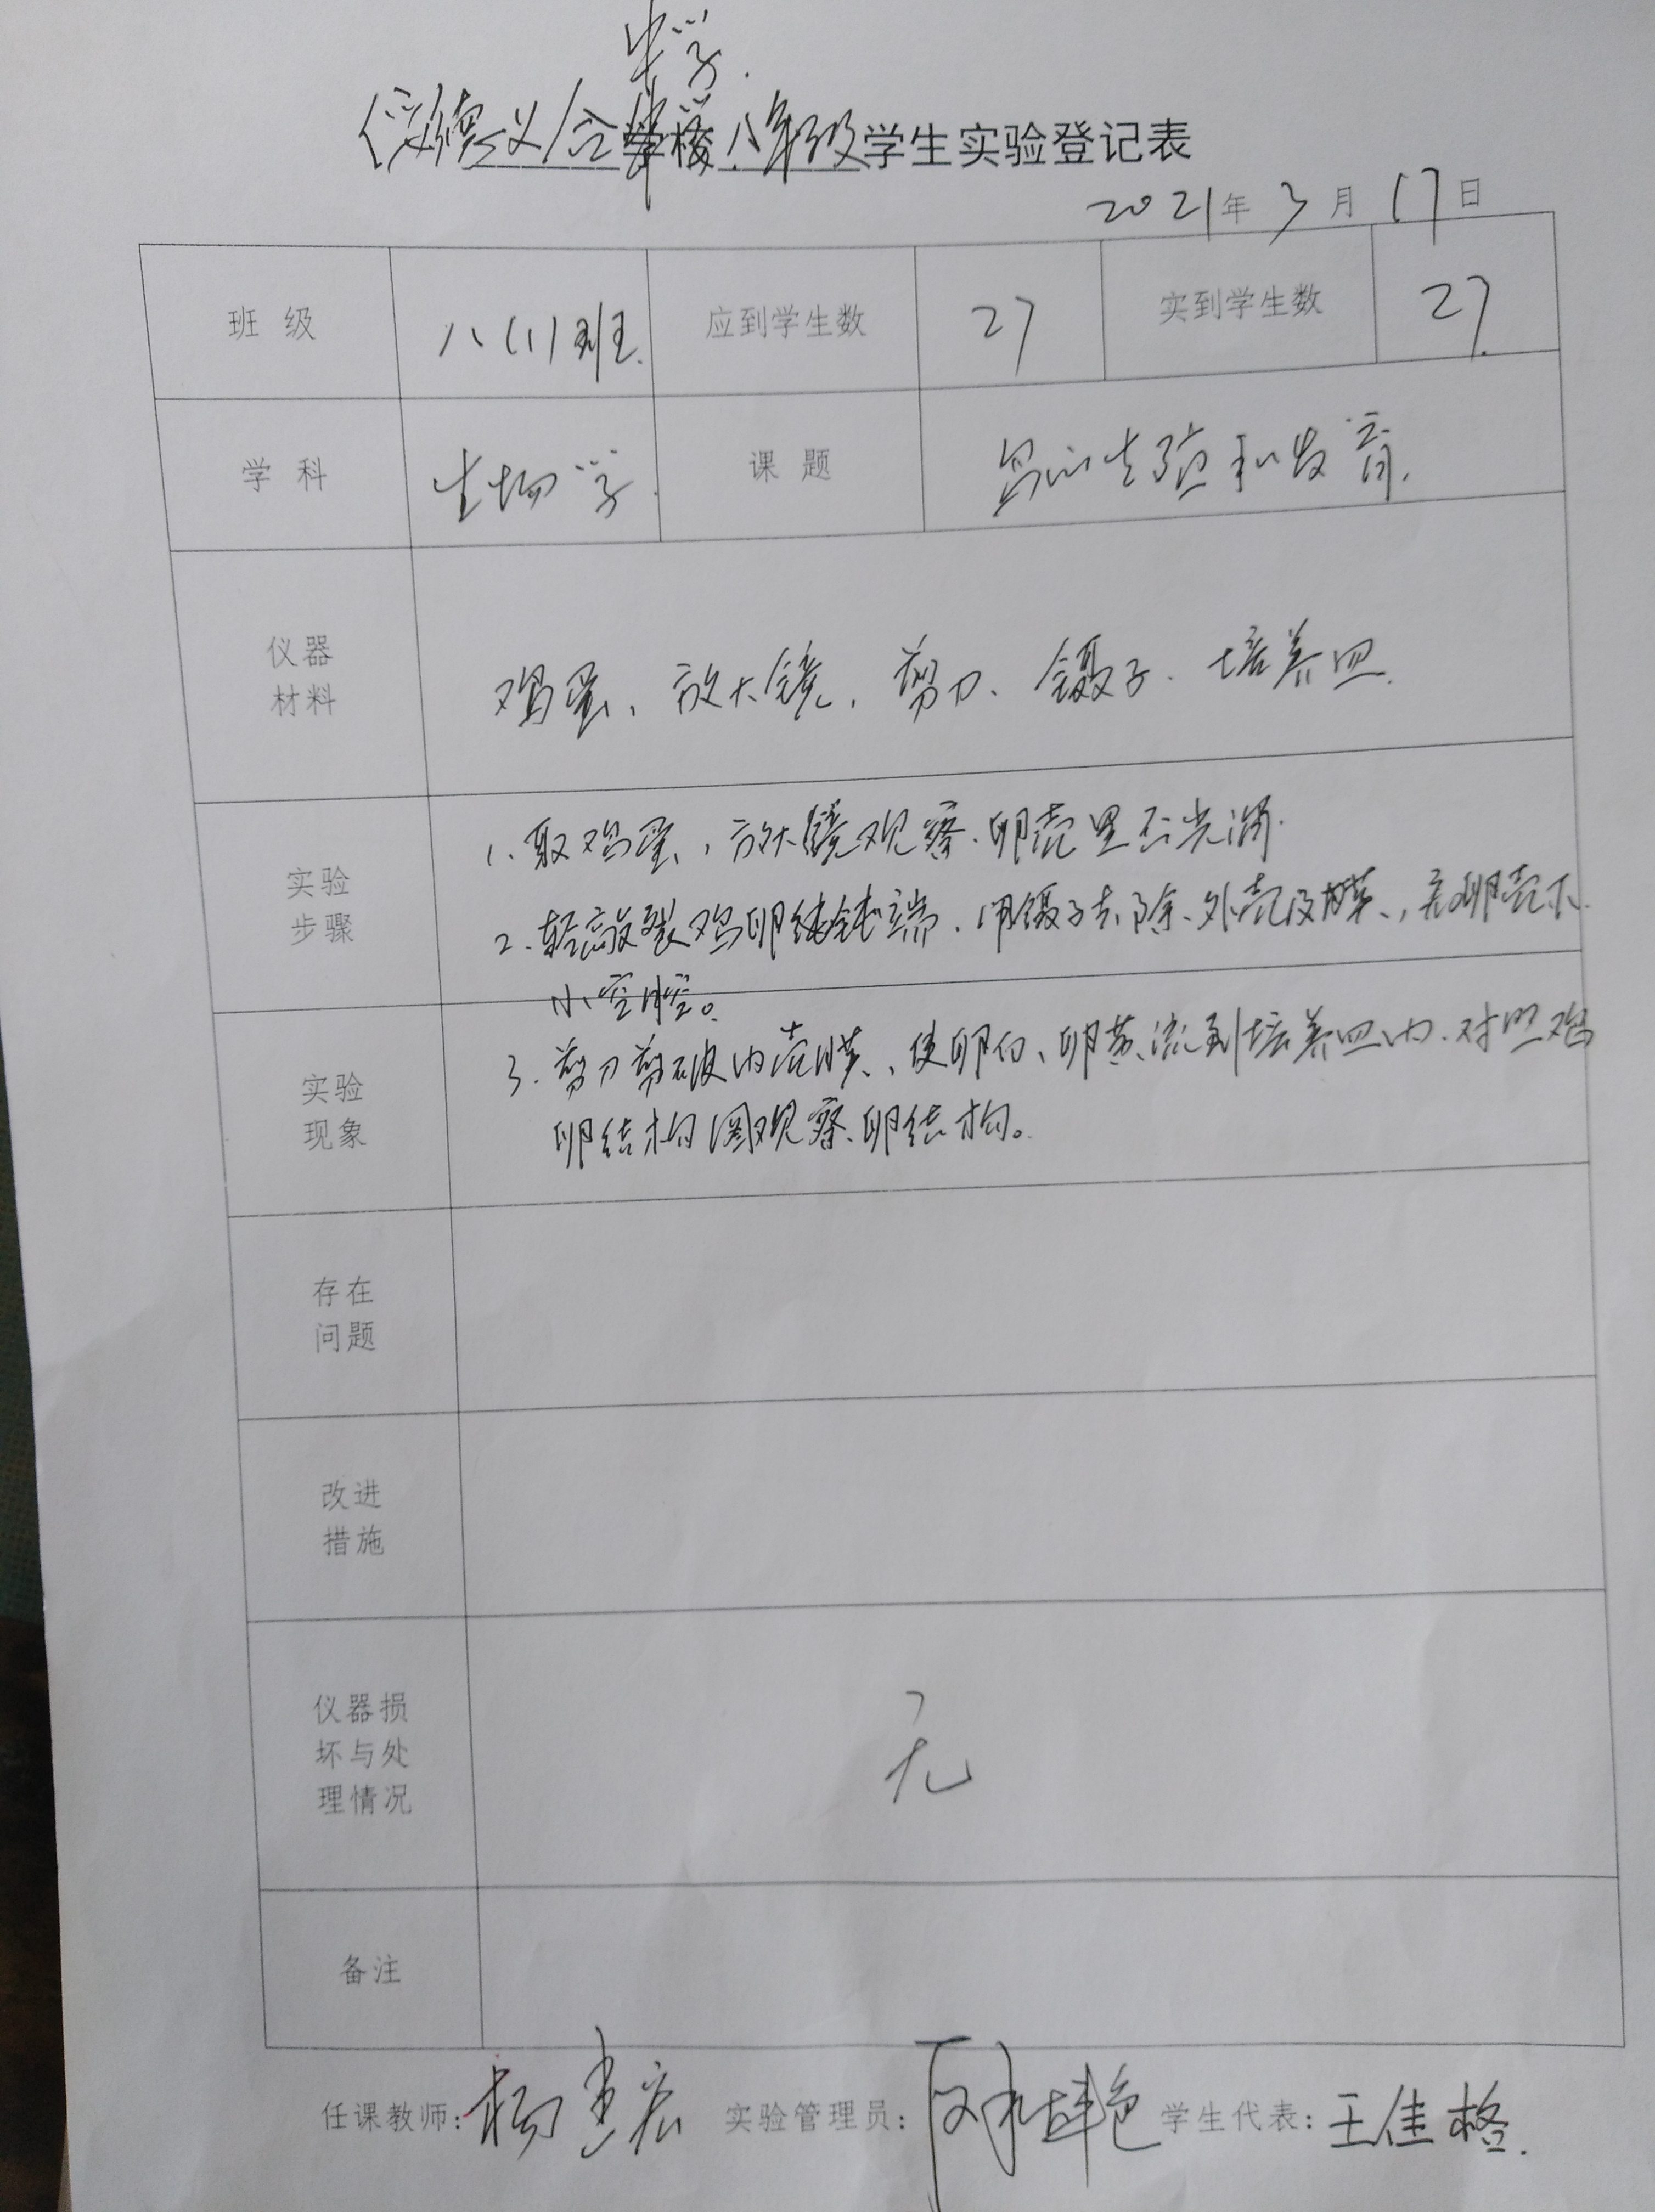 中学.
绥德义合中学八年级学生实验登记表
2021年3月17日
班级 八(1)班. 应到学生数 27 实到学生数 27.
学科 生物学. 课题 鸟的生殖和发育.
仪器
材料
鸡蛋、放大镜、剪刀、镊子、培养皿.
实验
步骤
1、取鸡蛋、放大镜观察、卵壳是否光滑.
2、轻敲裂鸡卵钝端、用镊子去除、外壳及膜、,卵壳下
小空腔。
实验
现象
3、剪刀剪破内壳膜、使卵白、卵黄、流到培养皿内、对照鸡
卵结构图观察、卵结构。
存在
问题
改进
措施
仪器损
坏与处
理情况
无
备注
任课教师: 实验管理员: 学生代表:王佳格.